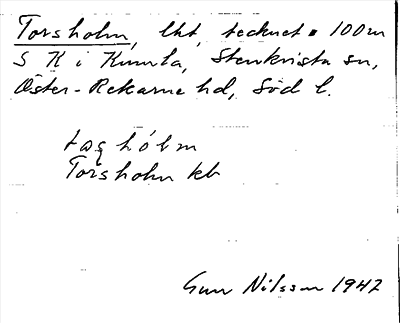 Torsholm, lht, tecknet • 100m
S K i Kumla, Stenkvista sn,
Öster-Rekarne hd, Söd l.
tɷʂhólm
Torsholm kb
Gun Nilsson 1942